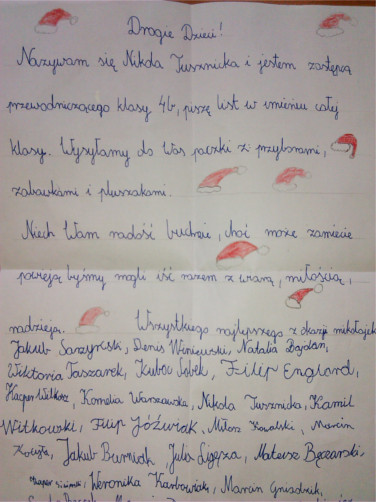 Drogie Dzieci!
Nazywam się Nikola Tusznicka i jestem zastępcą
przewodniczącego klasy 4b, piszę list w imieniu całej
klasy. Wysyłamy do Was paczki z przyborami,
zabawkami i pluszakami.
Niech Wam radość buchnie, choć może zamiecie
powieją byśmy mogli iść razem z wiarą, miłością,
nadzieją. Wszystkiego najlepszego z okazji mikołajek
Jakub Denis Winiewski, Natalia Bojdan,
Wiktoria Taszarek, Kuba Filip England,
Kacper Kornelia Warszawska, Nikola Tusznicka, Kamil
Witkowski, Filip Jóźwiak, Miłosz Kowalski, Marcin
Jakub Burniak, Julia Ligęza, Mateusz
Weronika Karbowiak, Marcin